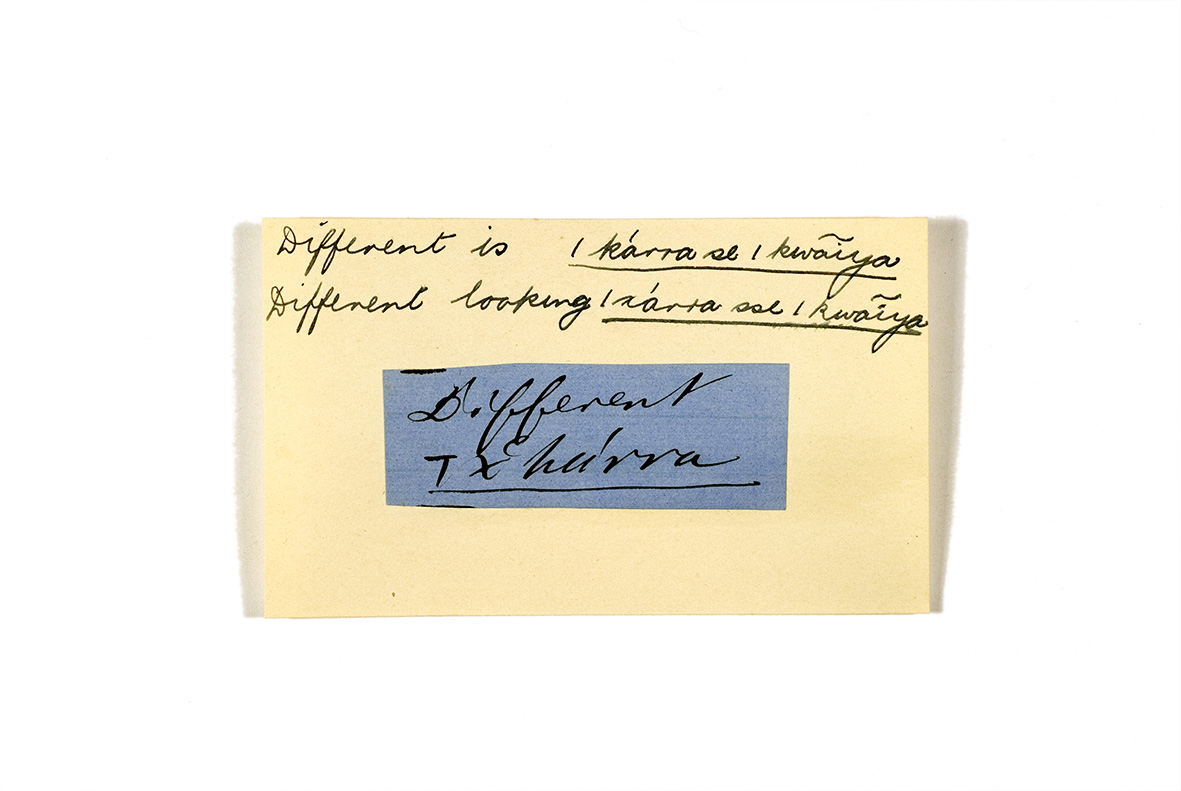 Different is ǀ kárra se ǀ kwãĭya
Different looking ǀ xárra sse ǀ kwãĭya
Different
T x̆ hárra